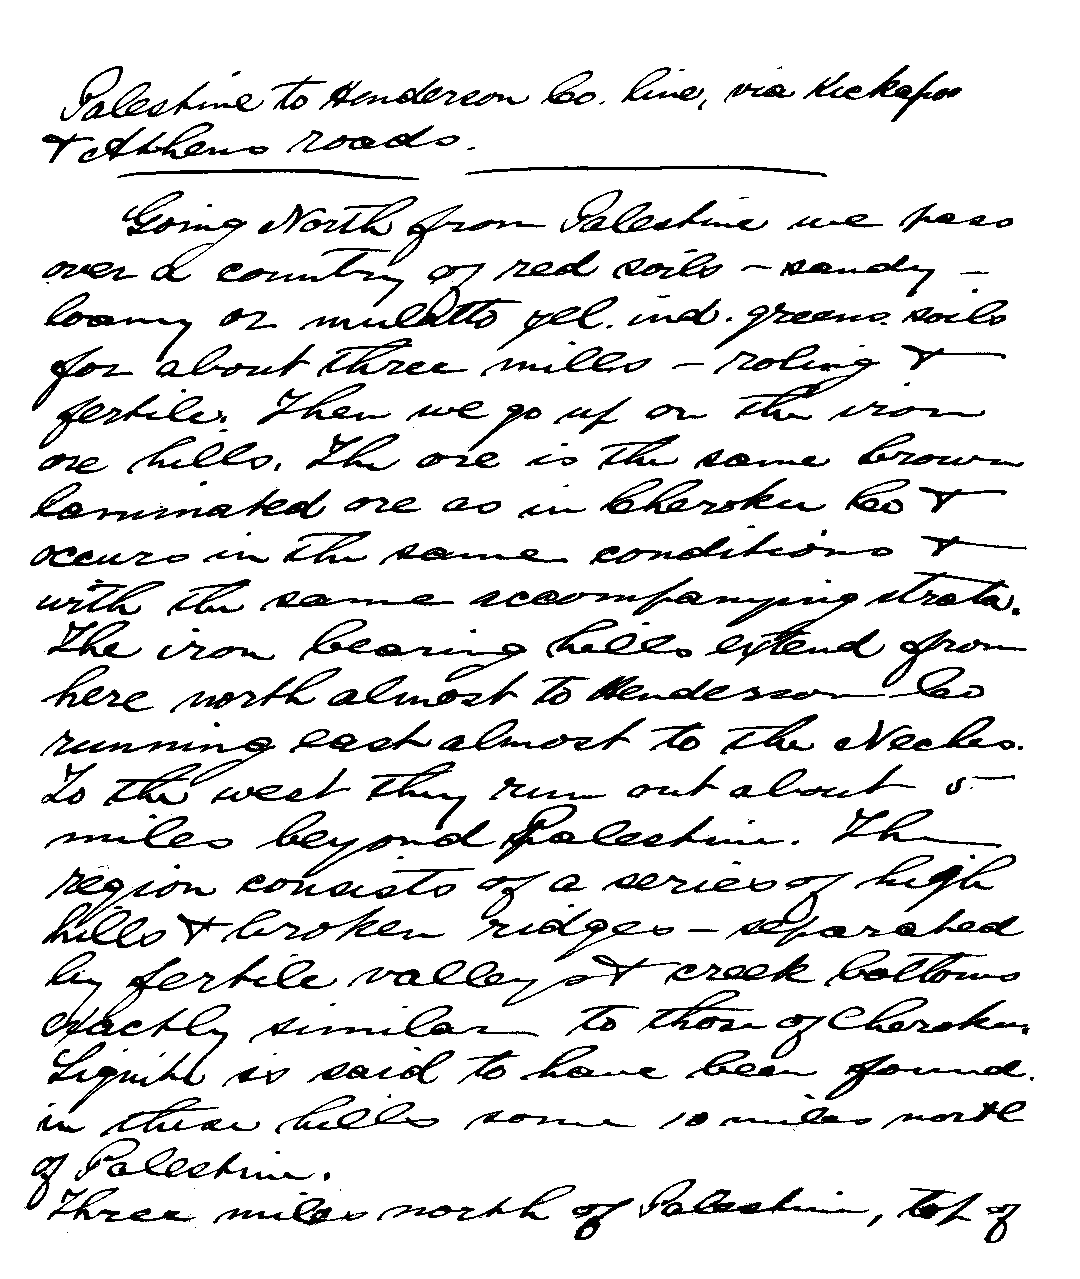 Palestine to Henderson Co. line, via Kickapoo
& Athens roads.
Going North from Palestine we pass
over a country of red soils - sandy -
loamy or mulatto yel. ind. greens. soils
for about three mills - roling &
fertile. Then we go up on the iron
ore hills. The ore is the same brown
laminated ore as in Cherokee Co &
occurs in the same conditions &
with the same accompanying strata.
The iron bearing hills extend from
here north almost to Henderson Co
running east almost to the Neches.
To the west they run out about 5
miles beyond Palestine. The
region consists of a series of high
hills & broken ridges - separated
by fertile valleys & creek bottoms
exactly similar to those of Cherokee.
Lignite is said to have been found
in these hills some 10 miles north
of Palestine.
Three miles north of Palestine, top of